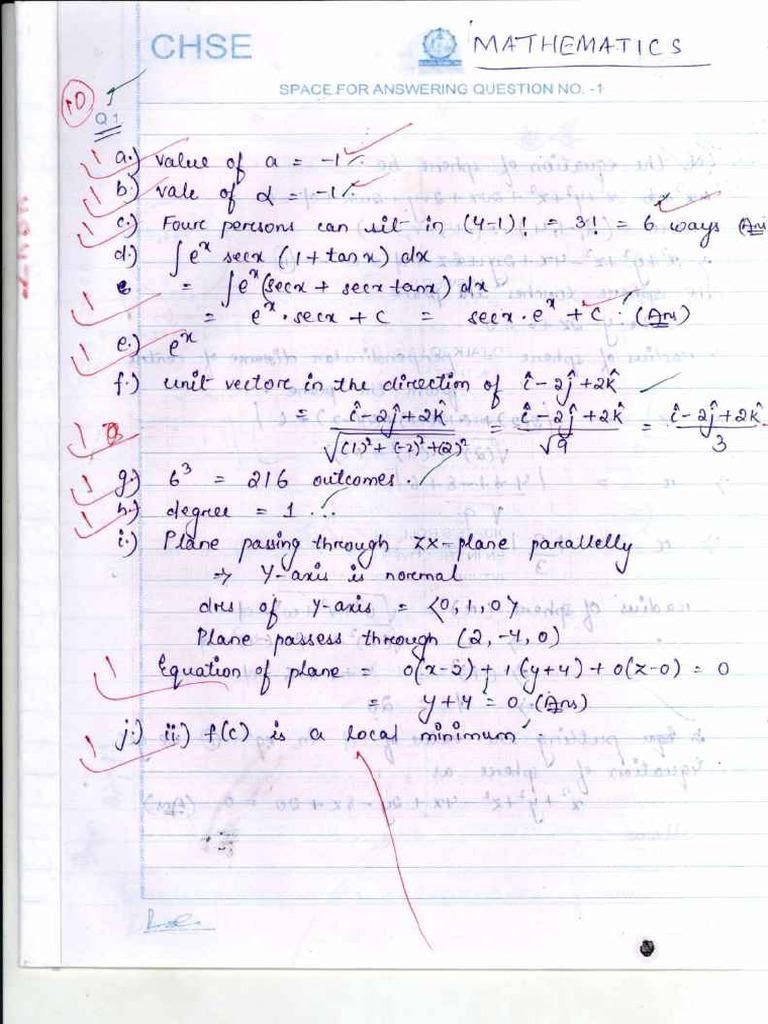 CHSE
MATHEMATICS
SPACE FOR ANSWERING QUESTION NO. -1
10
Q1
1 a.) value of a = -1
1 b.) vale of α = -1
1 c.) Four persons can sit in (4-1)! = 3! = 6 ways (Ans
d.) ∫e^x secx (1+tanx) dx
= ∫e^x(secx + secx tanx) dx
1 = e^x · secx + c = secx · e^x + c · (Ans)
1 e.) e^x
f.) unit vectore in the direction of î-2ĵ+2k̂
1 = (î-2ĵ+2k̂)/√((1)²+(-2)²+(2)²) = (î-2ĵ+2k̂)/√9 = (î-2ĵ+2k̂)/3
1 g.) 6³ = 216 outcomes.
1 h.) degree = 1 ..
i.) Plane passing through zx-plane parallelly
⇒ Y-axis is normal
drs of Y-axis = <0,1,0>
Plane passess through (2,-4,0)
1 Equation of plane = 0(x-2)+1(y+4)+0(z-0) = 0
= y+4 = 0 (Ans)
1 j.) ii.) f(c) is a local minimum.